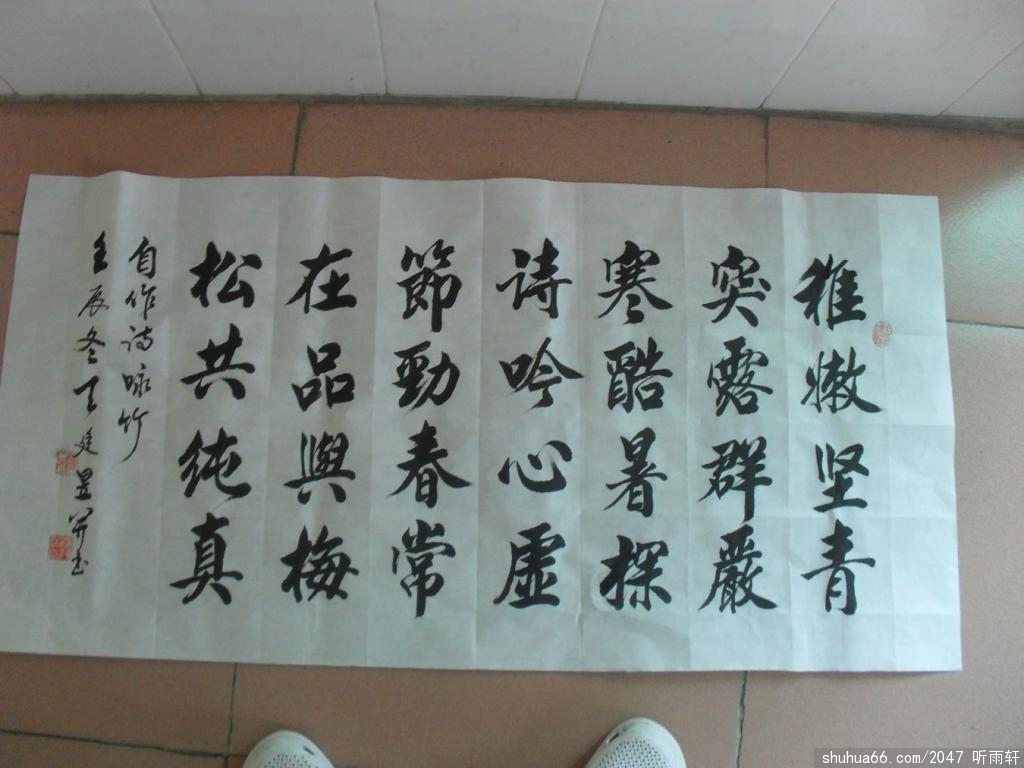 稚嫩坚青
突露群嚴
寒酷暑探
诗吟心虚
節勁春常
在品與梅
松共纯真
自作诗咏竹
壬辰冬王廷昱并书
shuhua66.com/2047 听雨轩